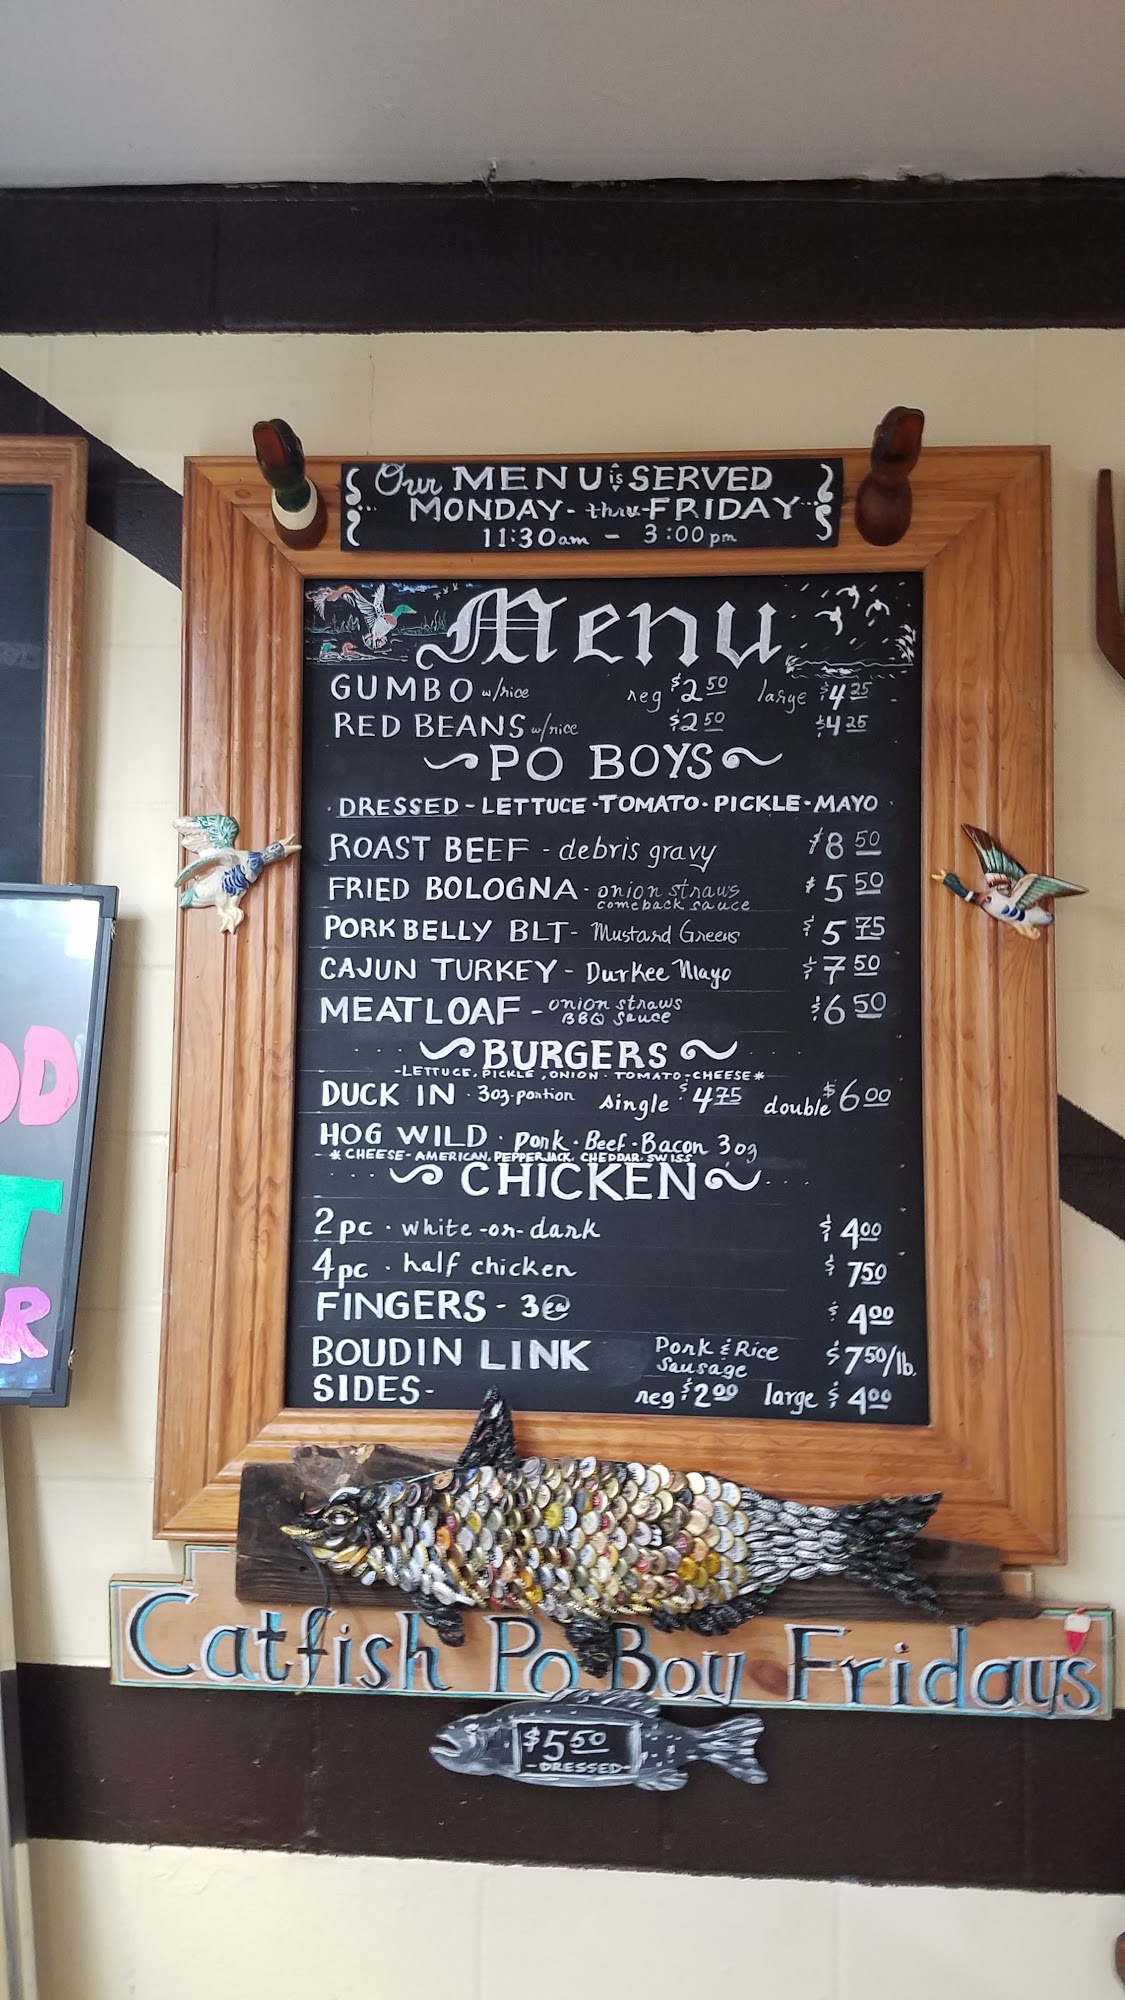 Our MENU is SERVED
MONDAY - thru - FRIDAY
11:30am - 3:00pm
Menu
GUMBO w/rice reg $2.50 large $4.25
RED BEANS w/rice $2.50 $4.25
PO BOYS
· DRESSED - LETTUCE · TOMATO · PICKLE · MAYO ·
ROAST BEEF - debris gravy $8.50
FRIED BOLOGNA - onion straws comeback sauce $5.50
PORK BELLY BLT - Mustard Greens $5.75
CAJUN TURKEY - Durkee Mayo $7.50
MEATLOAF - onion straws BBQ Sauce $6.50
BURGERS
-LETTUCE, PICKLE, ONION - TOMATO - CHEESE*
DUCK IN · 3oz. portion single $4.75 double $6.00
HOG WILD · Pork · Beef · Bacon 3oz
* CHEESE - AMERICAN, PEPPERJACK, CHEDDAR, SWISS
CHICKEN
2pc · white -or- dark $4.00
4pc · half chicken $7.50
FINGERS - 3 ea $4.00
BOUDIN LINK Pork & Rice Sausage $7.50/lb.
SIDES - reg $2.00 large $4.00
Catfish Po Boy Fridays
$5.50
-DRESSED-
OD
T
R